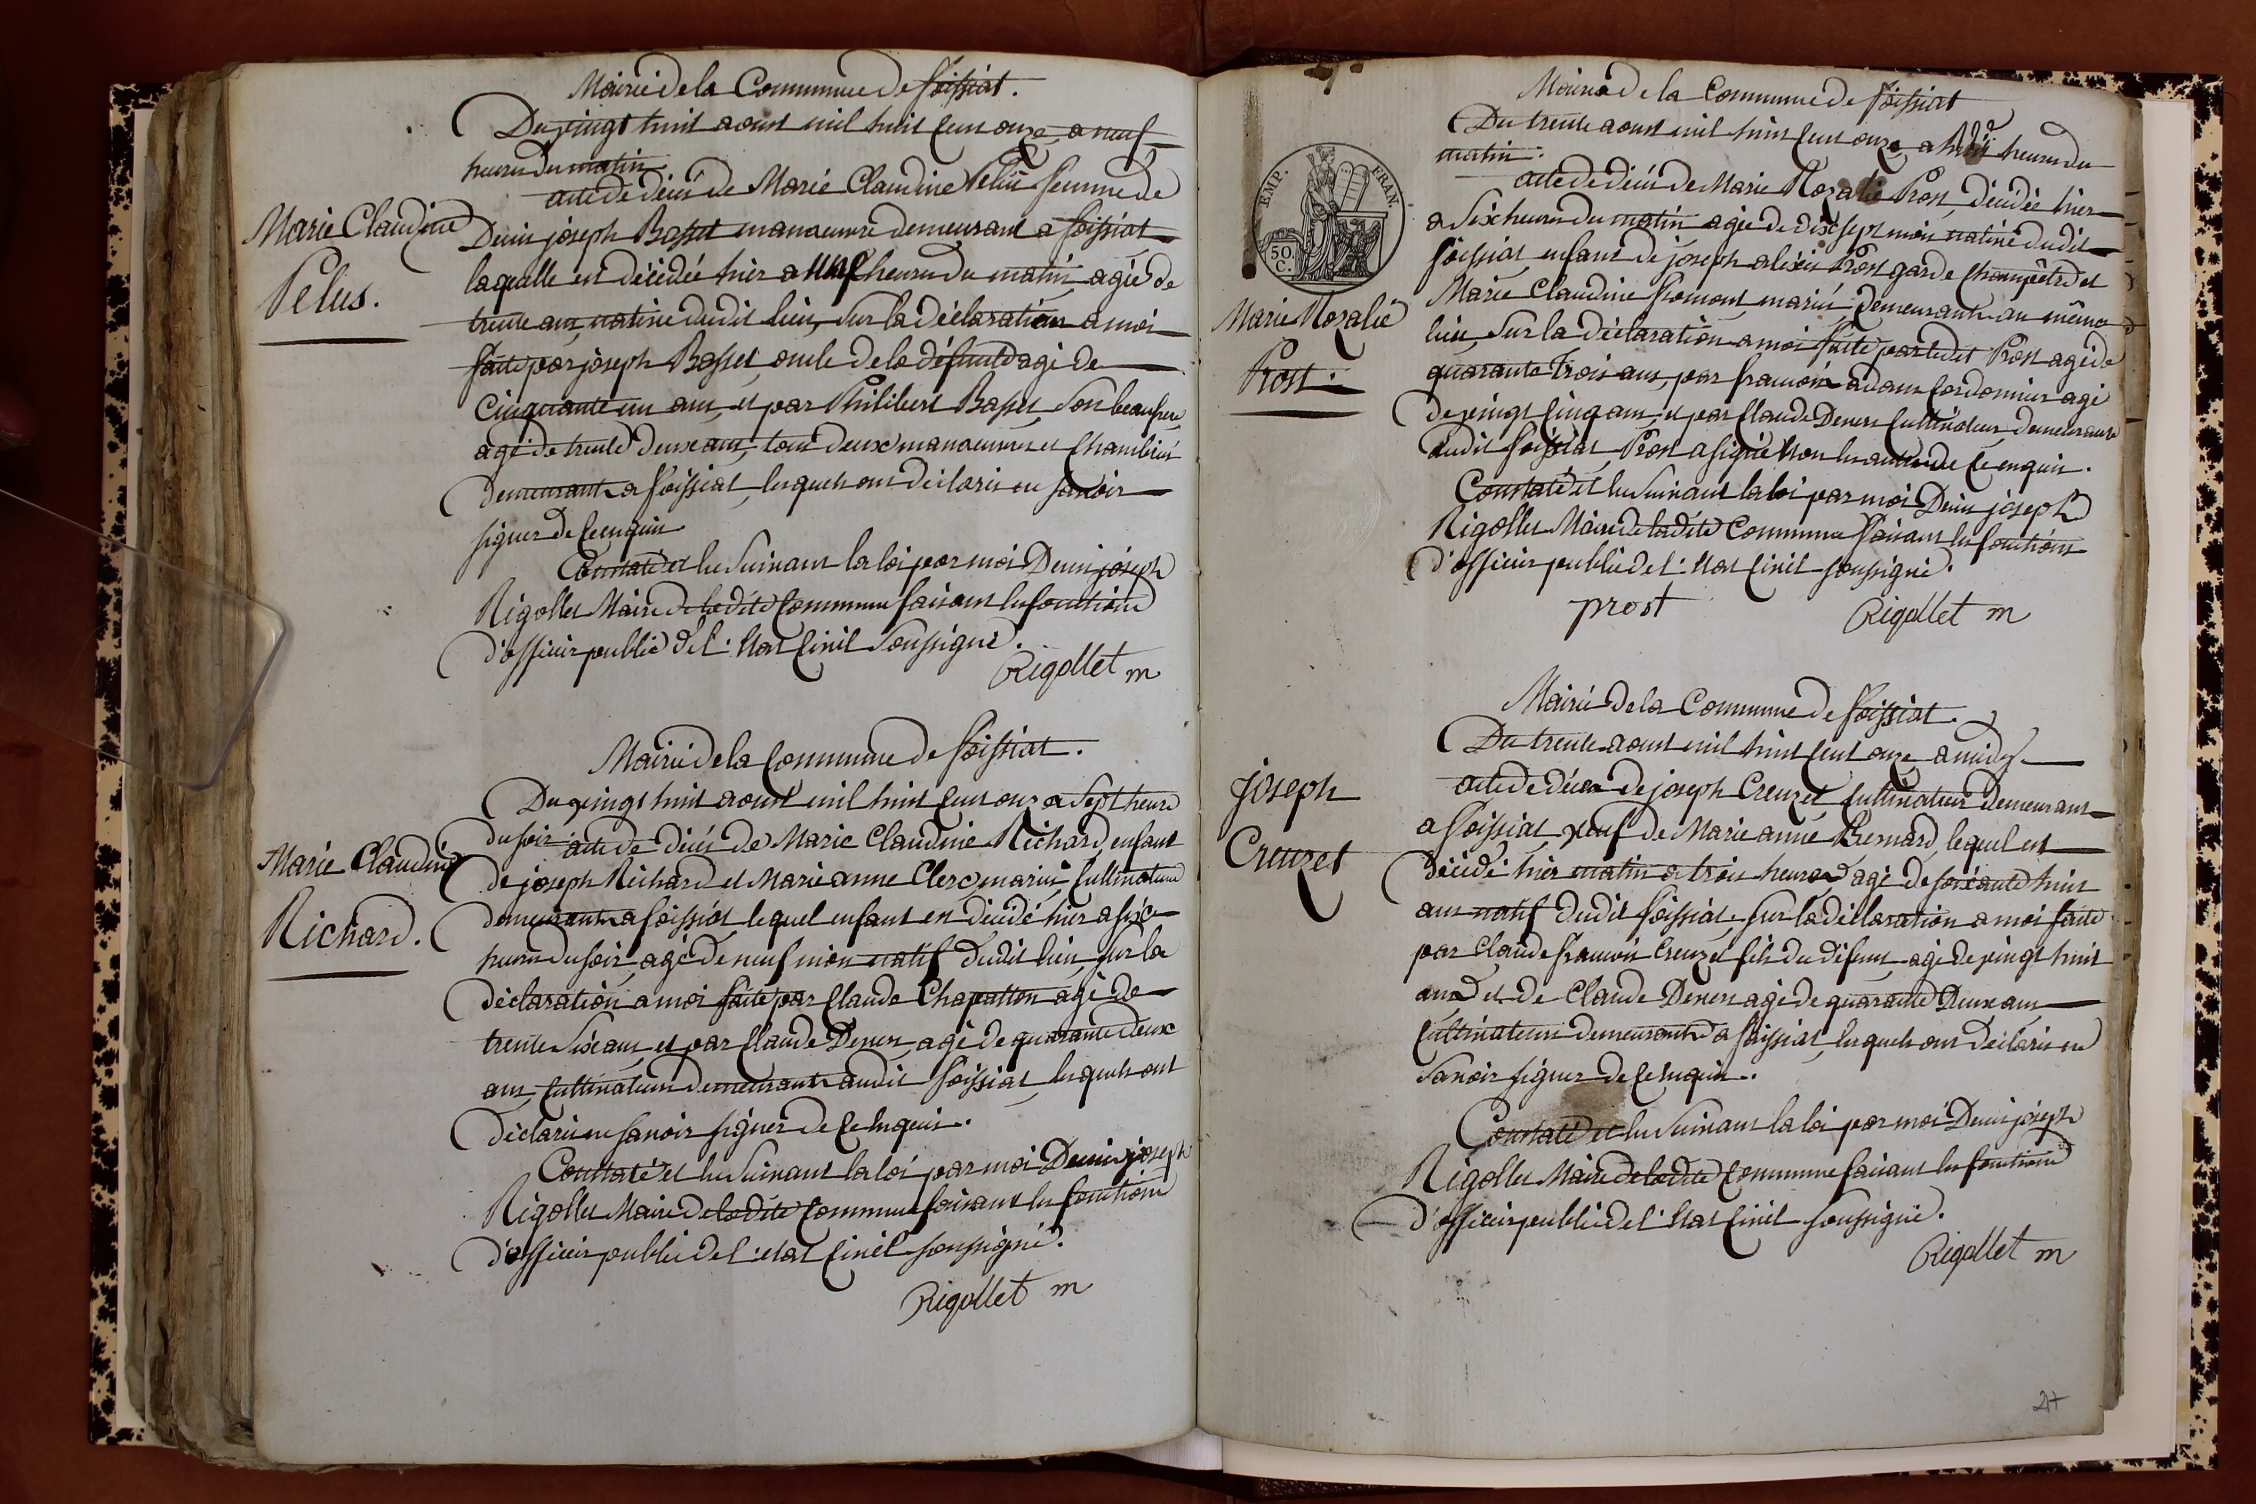 Mairie de la Commune de foissiat.
Du vingt huit aoust mil huit cent onze a neuf
heures du matin
acte de décès de Marie Claudine Pelus femme de
Denis joseph Basset manœuvre demeurant a foissiat
laquelle est décédée hier a neuf heures du matin, agée de
trente ans, native dudit lieu, sur la déclaration a moi
faite par joseph Basset, oncle de la défunte agé de
cinquante un ans, et par Philibert Basset, son beaufrere
agé de trente deux ans, tous deux manœuvres et
demeurants a foissiat, lesquels ont déclaré ne savoir
signer de ce enquis
Constaté et lu suivant la loi par moi Denis joseph
Rigollet Maire de ladite Commune faisant les fonctions
d'officier public de l'Etat Civil soussigné.
Rigollet m
Marie Claudine
Pelus.
Mairie de la Commune de foissiat.
Du vingt huit aoust mil huit cent onze a sept heures
du soir acte de décès de Marie Claudine Richard, enfant
de joseph Richard et Marie anne Clerc mariés, cultivateurs
demeurants a foissiat, lequel enfant est décédé hier a six
heures du soir, agé de neuf mois natif dudit lieu, sur la
déclaration a moi faite par Claude Chapatton agé de
trente six ans, et par Claude Denex, agé de quarante deux
ans, cultivateurs demeurants audit foissiat, lesquels ont
déclaré ne savoir signer de ce enquis.
Constaté et lu suivant la loi par moi Denis joseph
Rigollet Maire de ladite Commune faisant les fonctions
d'officier public de l'etat civil soussigné.
Rigollet m
Marie Claudine
Richard.
Mairie de la Commune de foissiat
Du trente aoust mil huit cent onze a heures du
matin.
acte de décès de Marie Rozalie Prost, décédée hier
a six heures du matin agée de dix sept mois native dudit
foissiat, enfant de joseph alexis Prost garde champêtre et
Marie Claudine fromont mariés, demeurants au même
lieu, sur la déclaration a moi faite par ledit Prost agé de
quarante trois ans, par francois adam cordonnier agé
de vingt cinq ans, et par Claude Denex cultivateur, demeurants
audit foissiat, Prost a signé non les autres de ce enquis.
Constaté et lu suivant la loi par moi Denis joseph
Rigollet Maire de ladite Commune faisant les fonctions
d'officier public de l'Etat Civil soussigné.
prost Rigollet m
EMP. FRAN.
50 C.
Marie Rozalie
Prost.
Mairie de la Commune de foissiat.
Du trente aoust mil huit cent onze a midy
acte de décès de joseph Creuzet, cultivateur demeurant
a foissiat, veuf de Marie anne Bernard, lequel est
décédé hier matin a trois heures agé de soixante huit
ans natif dudit foissiat, sur la déclaration a moi faite
par Claude francois Creuzet fils du défunt, agé de vingt huit
ans et de Claude Denex agé de quarante deux ans
cultivateurs demeurants a foissiat, lesquels ont déclaré ne
savoir signer de ce enquis.
Constaté et lu suivant la loi par moi Denis joseph
Rigollet Maire de ladite Commune faisant les fonctions
d'officier public de l'Etat Civil soussigné.
Rigollet m
joseph
Creuzet